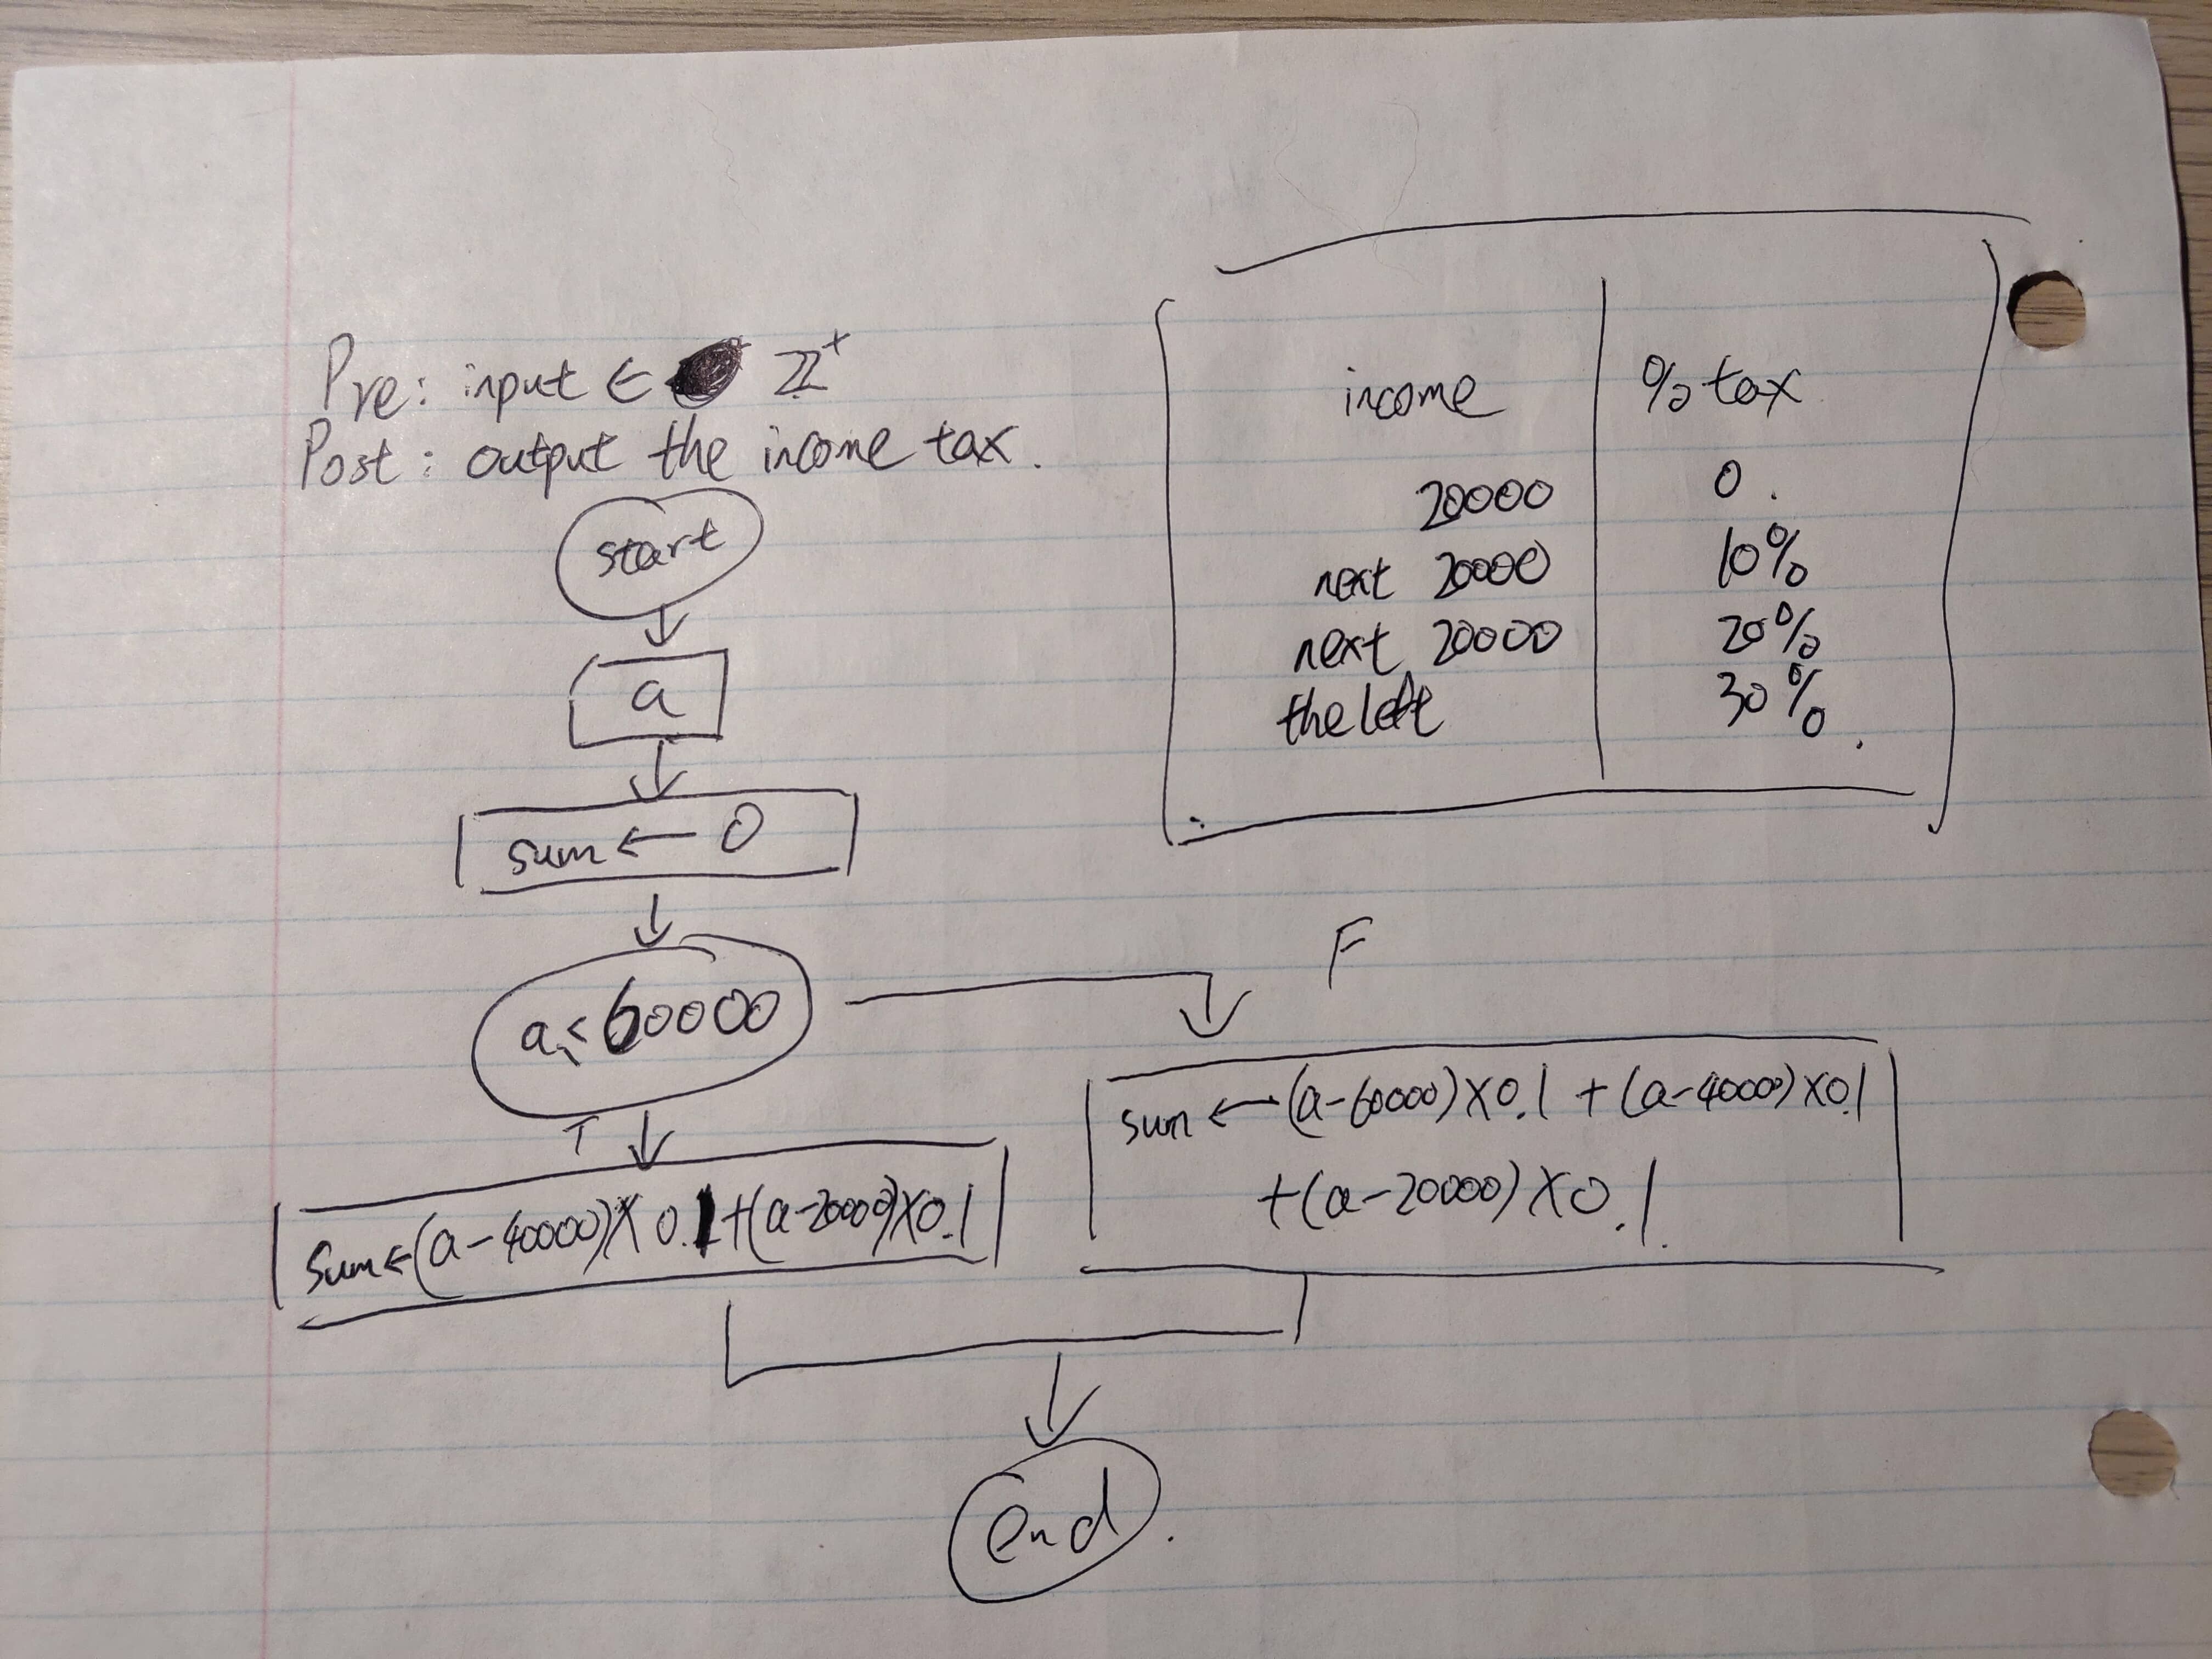 Pre: input ∈ ℤ⁺
Post: output the income tax.
income % tax
20000 0.
next 20000 10%
next 20000 20%
the left 30%.
start
a
sum ← 0
a ≤ 60000
F
T
sum ← (a-60000)×0.1 + (a-40000)×0.1
+(a-20000)×0.1.
Sum ← (a-40000)×0.1+(a-20000)×0.1
end.